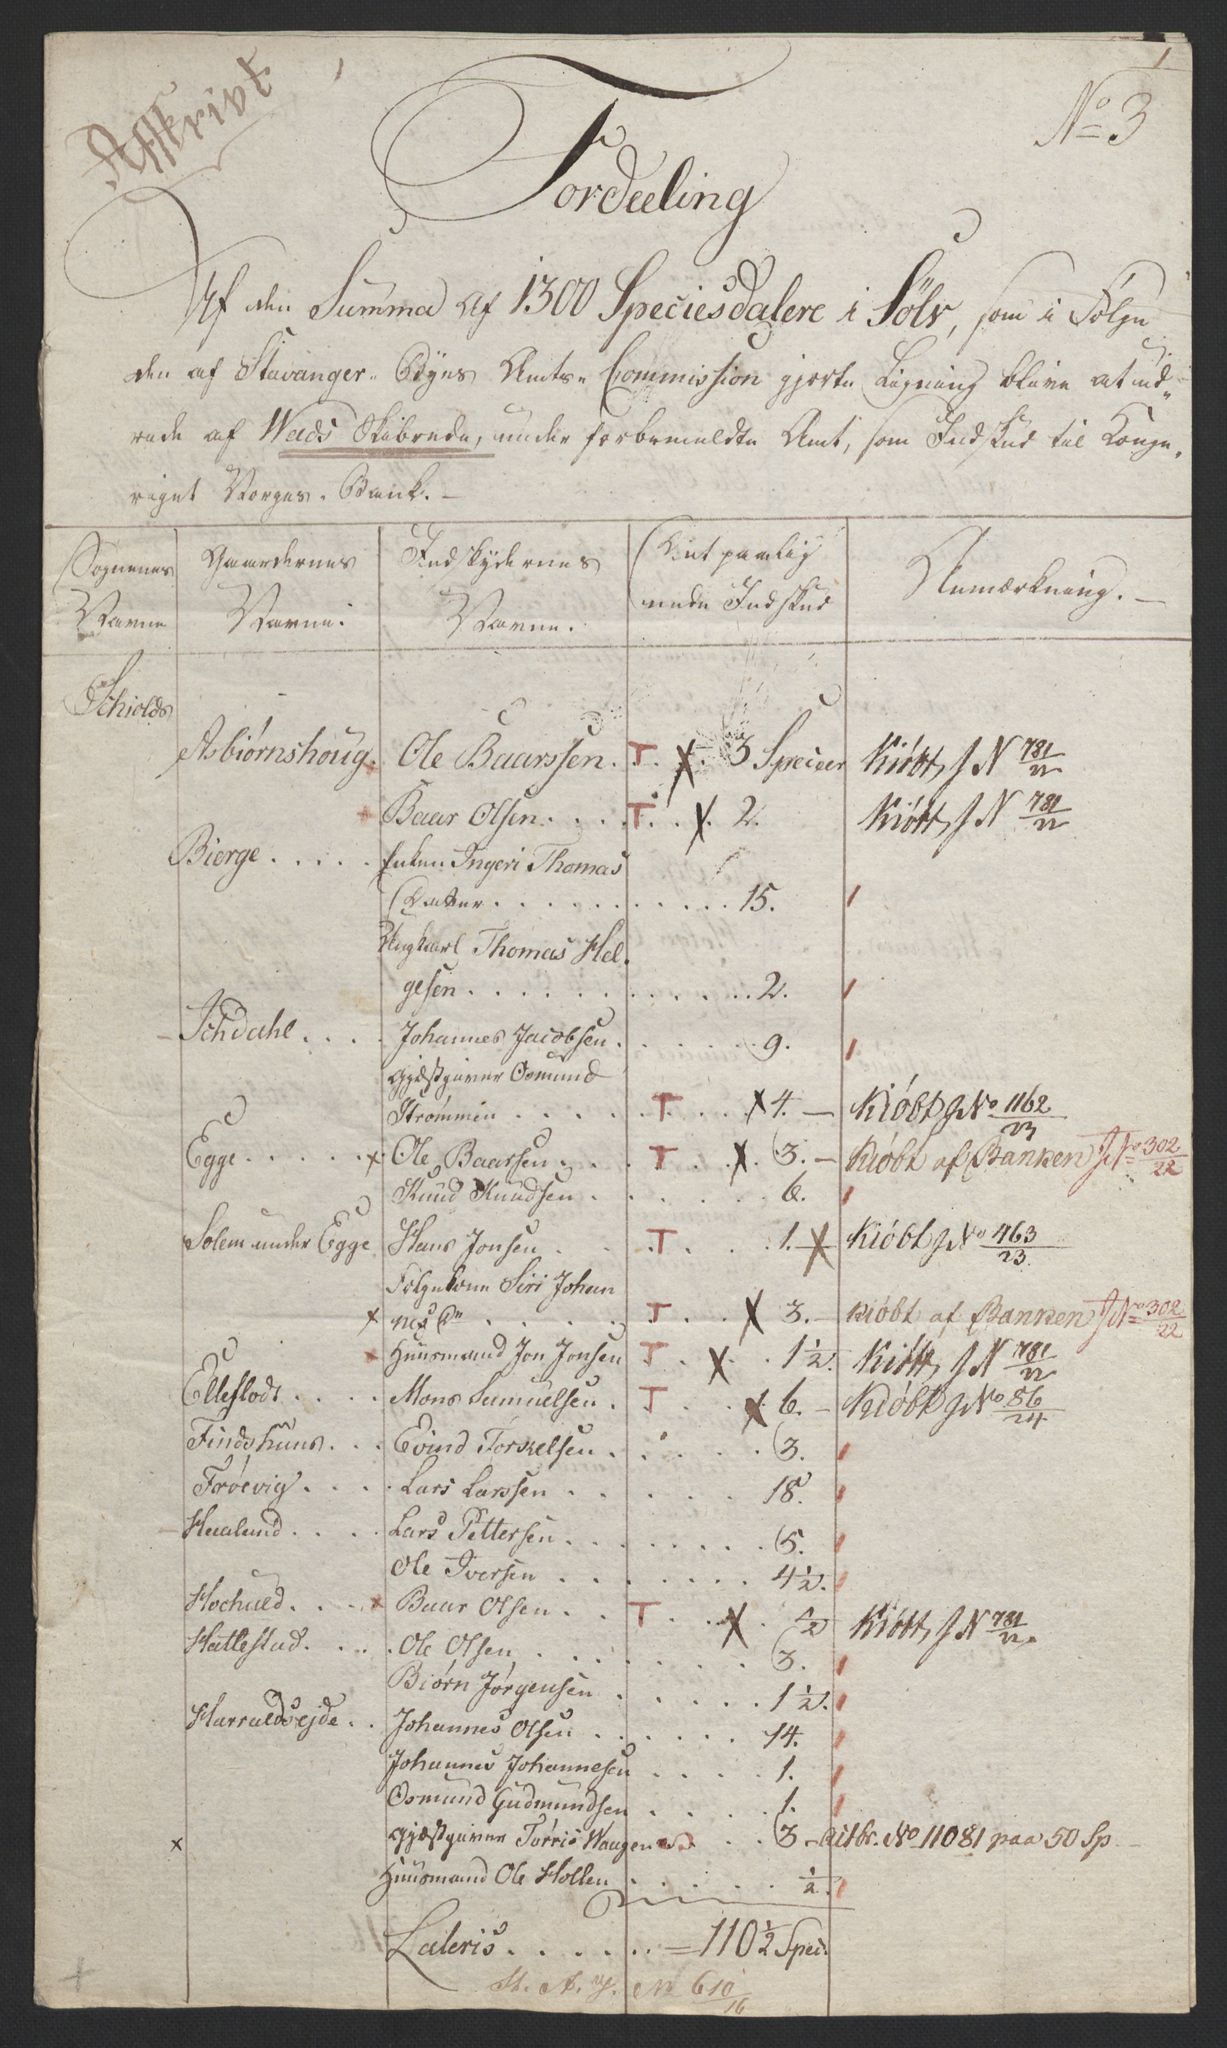 Afskrivt
1
No 3
Fordeeling
Af den Summa af 1300 Speciesdalere i Sølv, som i Følge
den af Stavanger Byes Amts Commission gjorte Ligning blive at ud-
rede af Wads Skibrede, under forbemeldte Amt, som Indskud til Konge-
riget Norges Bank. —
Sognenes Navne
Gaardernes Navne.
Indskydernes Navne.
Det paalignede Indskud
Anmærkning. —
Schiolds
Asbiørnshoug. Ole Baarssen. T. X. 3 Specier Kiöbt J N 781/22
Baar Olsen. . . . T. . X. 2. Kiöbt J N 781/22
Bierge . . . . . Enken Ingeri Thomas
Datter . . . . . . . . . . . 15.
Ungkarl Thomas Hel-
gesen . . . . . . . . . . . 2.
Ichdahl . . . . Johannes Jacobsen . . . . . . 9.
Gjæstgiver Osmund
Strømmen . . . . . T . . . X 4. — Kiöbt J No 1162/23
Egge . . . . . x Ole Baarsen . . . . T . . X . 3. — Kiöbt af Banken J No 302/22
Knud Knudsen . . . . . . . 6.
Solem under Egge Hans Jonsen . . . . T . . . . 1. X Kiöbt J No 463/23
Følgekone Siri Johan
x nes Dr . . . . . . T . . . X 3. — Kiöbt af Banken J No 302/22
Huusmand Jon Jonsen T . . . X . . 1 1/2. Kiöbt J N 781/22
Elleflodt . . . . Mons Samuelsen . T . . . X 6. — Kiöbt J No 86/24
Findshuus . . . Evind Torkelsen . . . . . . . 3.
Frøevig . . . . Lars Larssen . . . . . . . 18.
Haalund . . . . Lars Pettersen . . . . . . . 5.
Ole Iversen . . . . . . . 4 1/2.
Hochuld . . . x Baar Olsen . . T . . . X . 1/2 Kiöbt J N 781/22
Hattestad . . . . Ole Olsen . . . . . . . . 3.
Biørn Jørgensen . . . . . . 1 1/2.
Harraldsejde . . Johannes Olsen . . . . . . . 14.
Johannes Johannesen . . . . 1.
Osmund Gudmundsen . . . . 1.
x Gjæstgiver Tørris Waagenes . . . 3 — No 11081 paa 50 Sp
Huusmand Ole Hollen . . . . . . 1/2.
Lateris . . . . . . = 110 1/2 Spec.
No 610/16